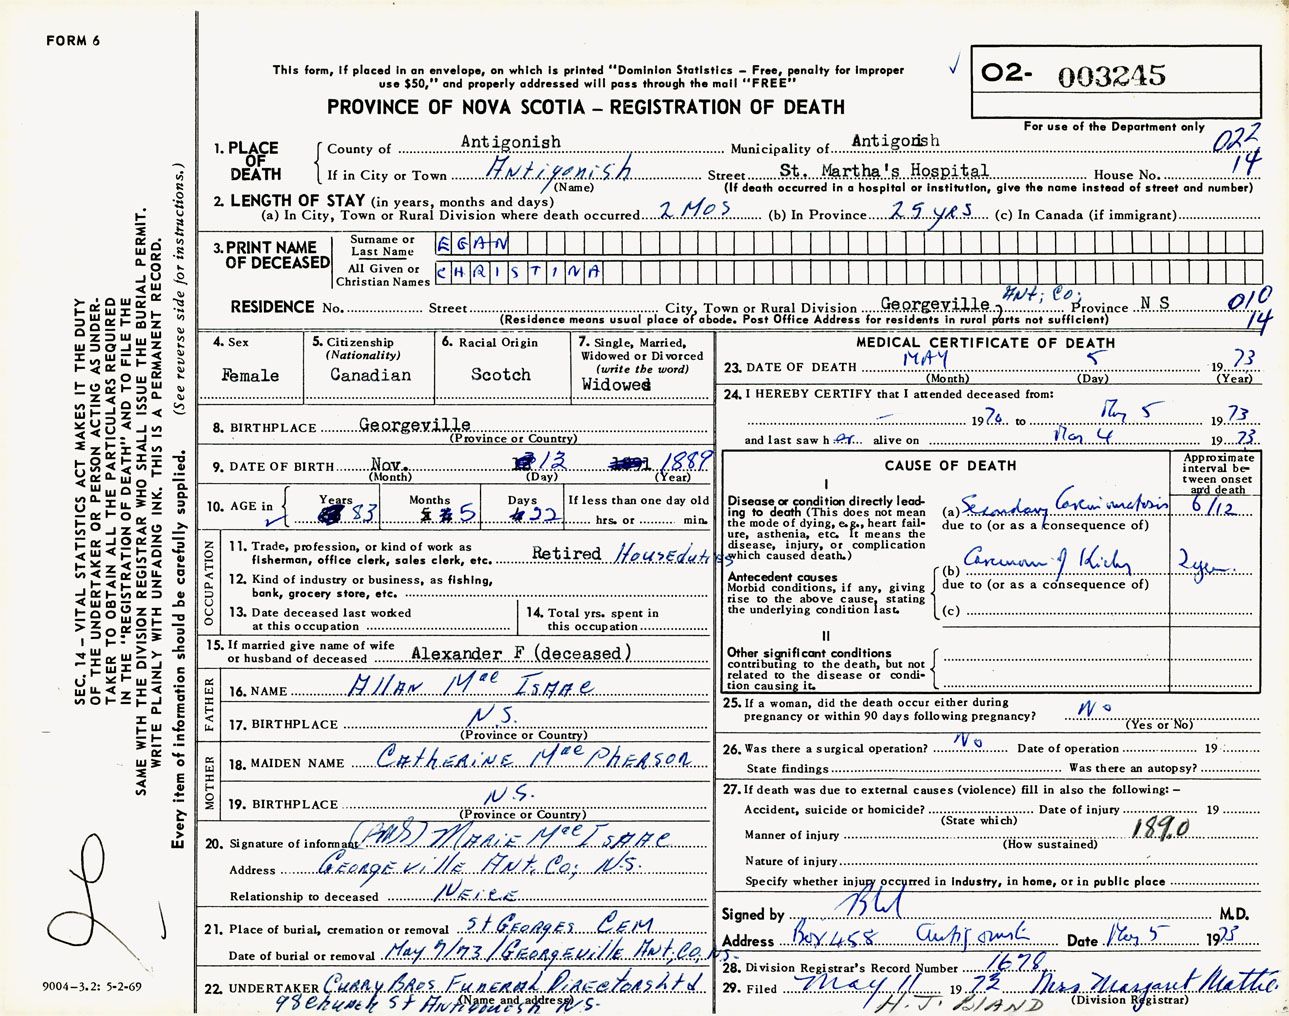 FORM 6
This form, if placed in an envelope, on which is printed "Dominion Statistics – Free, penalty for improper
use $50," and properly addressed will pass through the mail "FREE"
✓ O2- 003245
PROVINCE OF NOVA SCOTIA – REGISTRATION OF DEATH
For use of the Department only
022
14
1. PLACE OF DEATH
County of Antigonish Municipality of Antigonish
If in City or Town Antigonish Street St. Martha's Hospital House No.
(Name) (If death occurred in a hospital or institution, give the name instead of street and number)
2. LENGTH OF STAY (in years, months and days)
(a) In City, Town or Rural Division where death occurred 2 MOS (b) In Province 25 YRS (c) In Canada (if immigrant)
3. PRINT NAME OF DECEASED
Surname or Last Name EGAN
All Given or Christian Names CHRISTINA
RESIDENCE No. Street City, Town or Rural Division Georgeville, Ant; Co; Province N S
(Residence means usual place of abode. Post Office Address for residents in rural parts not sufficient)
010
14
4. Sex
Female
5. Citizenship
(Nationality)
Canadian
6. Racial Origin
Scotch
7. Single, Married,
Widowed or Divorced
(write the word)
Widowed
8. BIRTHPLACE Georgeville
(Province or Country)
9. DATE OF BIRTH Nov. 13 1889
(Month) (Day) (Year)
10. AGE in Years Months Days If less than one day old
83 5 22 hrs. or min.
OCCUPATION
11. Trade, profession, or kind of work as
fisherman, office clerk, sales clerk, etc. Retired Houseduties
12. Kind of industry or business, as fishing,
bank, grocery store, etc.
13. Date deceased last worked
at this occupation
14. Total yrs. spent in
this occupation
15. If married give name of wife
or husband of deceased Alexander F (deceased)
FATHER
16. NAME Allan Mac Isaac
17. BIRTHPLACE N.S.
(Province or Country)
MOTHER
18. MAIDEN NAME Catherine Mac Pherson
19. BIRTHPLACE N.S.
(Province or Country)
20. Signature of informant Marie Mac Isaac
Address Georgeville Ant. Co; N.S.
Relationship to deceased Neice
21. Place of burial, cremation or removal St Georges Cem
Date of burial or removal May 7/73 / Georgeville Ant, Co, N.S.
22. UNDERTAKER Curry Bros Funeral Directors Ltd
98 Church St Antigonish N.S.
(Name and address)
MEDICAL CERTIFICATE OF DEATH
23. DATE OF DEATH MAY 5 1973
(Month) (Day) (Year)
24. I HEREBY CERTIFY that I attended deceased from:
1970 to May 5 1973
and last saw her alive on May 4 1973
CAUSE OF DEATH
Approximate
interval be-
tween onset
and death
I
Disease or condition directly lead-
ing to death (This does not mean
the mode of dying, e.g., heart fail-
ure, asthenia, etc. It means the
disease, injury, or complication
which caused death.)
(a) Secondary Carcinomatosis 6/12
due to (or as a consequence of)
Antecedent causes
Morbid conditions, if any, giving
rise to the above cause, stating
the underlying condition last.
(b) Carcinoma of 2 years
due to (or as a consequence of)
(c)
II
Other significant conditions
contributing to the death, but not
related to the disease or condi-
tion causing it.
25. If a woman, did the death occur either during
pregnancy or within 90 days following pregnancy? No
(Yes or No)
26. Was there a surgical operation? No Date of operation 19
State findings Was there an autopsy?
27. If death was due to external causes (violence) fill in also the following: –
Accident, suicide or homicide? Date of injury 19
(State which)
Manner of injury 189.0
(How sustained)
Nature of injury
Specify whether injury occurred in industry, in home, or in public place
Signed by M.D.
Address Box 458 Antigonish Date May 5 1973
28. Division Registrar's Record Number 1678
29. Filed May 11 1973 Miss Margaret Mattie
H. J. BLAND (Division Registrar)
SEC. 14 – VITAL STATISTICS ACT MAKES IT THE DUTY
OF THE UNDERTAKER OR PERSON ACTING AS UNDER-
TAKER TO OBTAIN ALL THE PARTICULARS REQUIRED
IN THE "REGISTRATION OF DEATH" AND TO FILE THE
SAME WITH THE DIVISION REGISTRAR WHO SHALL ISSUE THE BURIAL PERMIT.
WRITE PLAINLY WITH UNFADING INK. THIS IS A PERMANENT RECORD.
Every item of information should be carefully supplied. (See reverse side for instructions.)
9004-3.2: 5-2-69